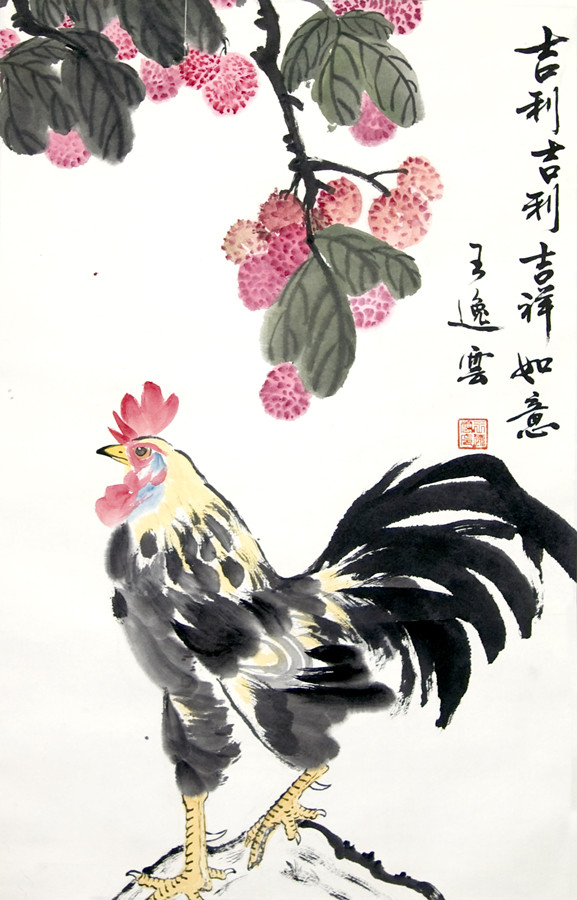 吉利吉利吉祥如意
王逸雲